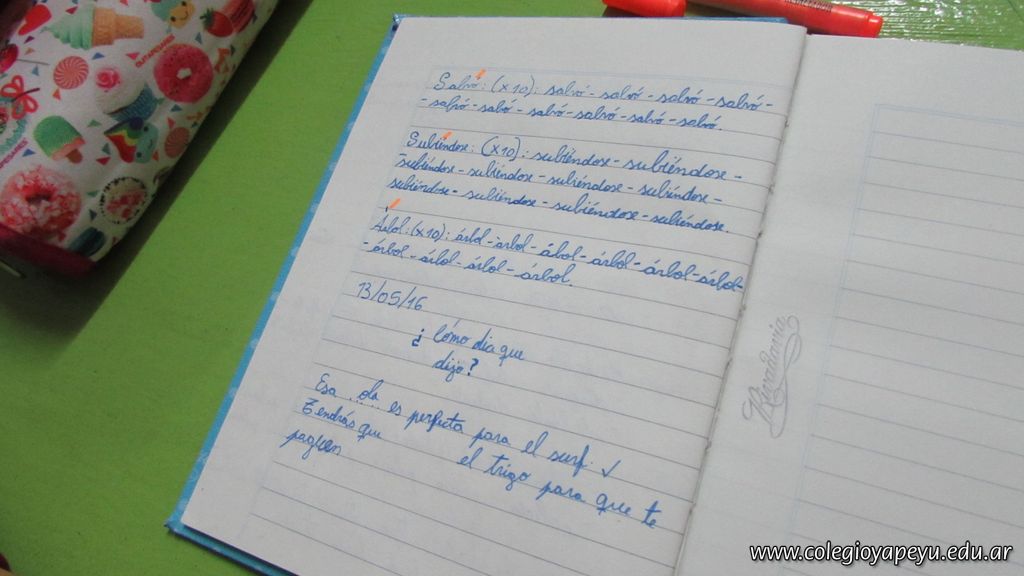 Salvó: (x10): salvó - salvó - salvó - salvó -
- salvó - salvó - salvó - salvó - salvó - salvó.
Subiéndose: (x10): subiéndose - subiéndose -
- subiéndose - subiéndose - subiéndose - subiéndose -
subiéndose - subiéndose - subiéndose - subiéndose.
Árbol: (x10): árbol - árbol - ábol - árbol - árbol - árbol -
- árbol - árbol - árbol - árbol.
13/05/16
¿Cómo dice que
dijo?
Esa ola es perfecta para el surf. ✓
Tendrás que el trigo para que te
paguen
Rivadavia
www.colegioyapeyu.edu.ar